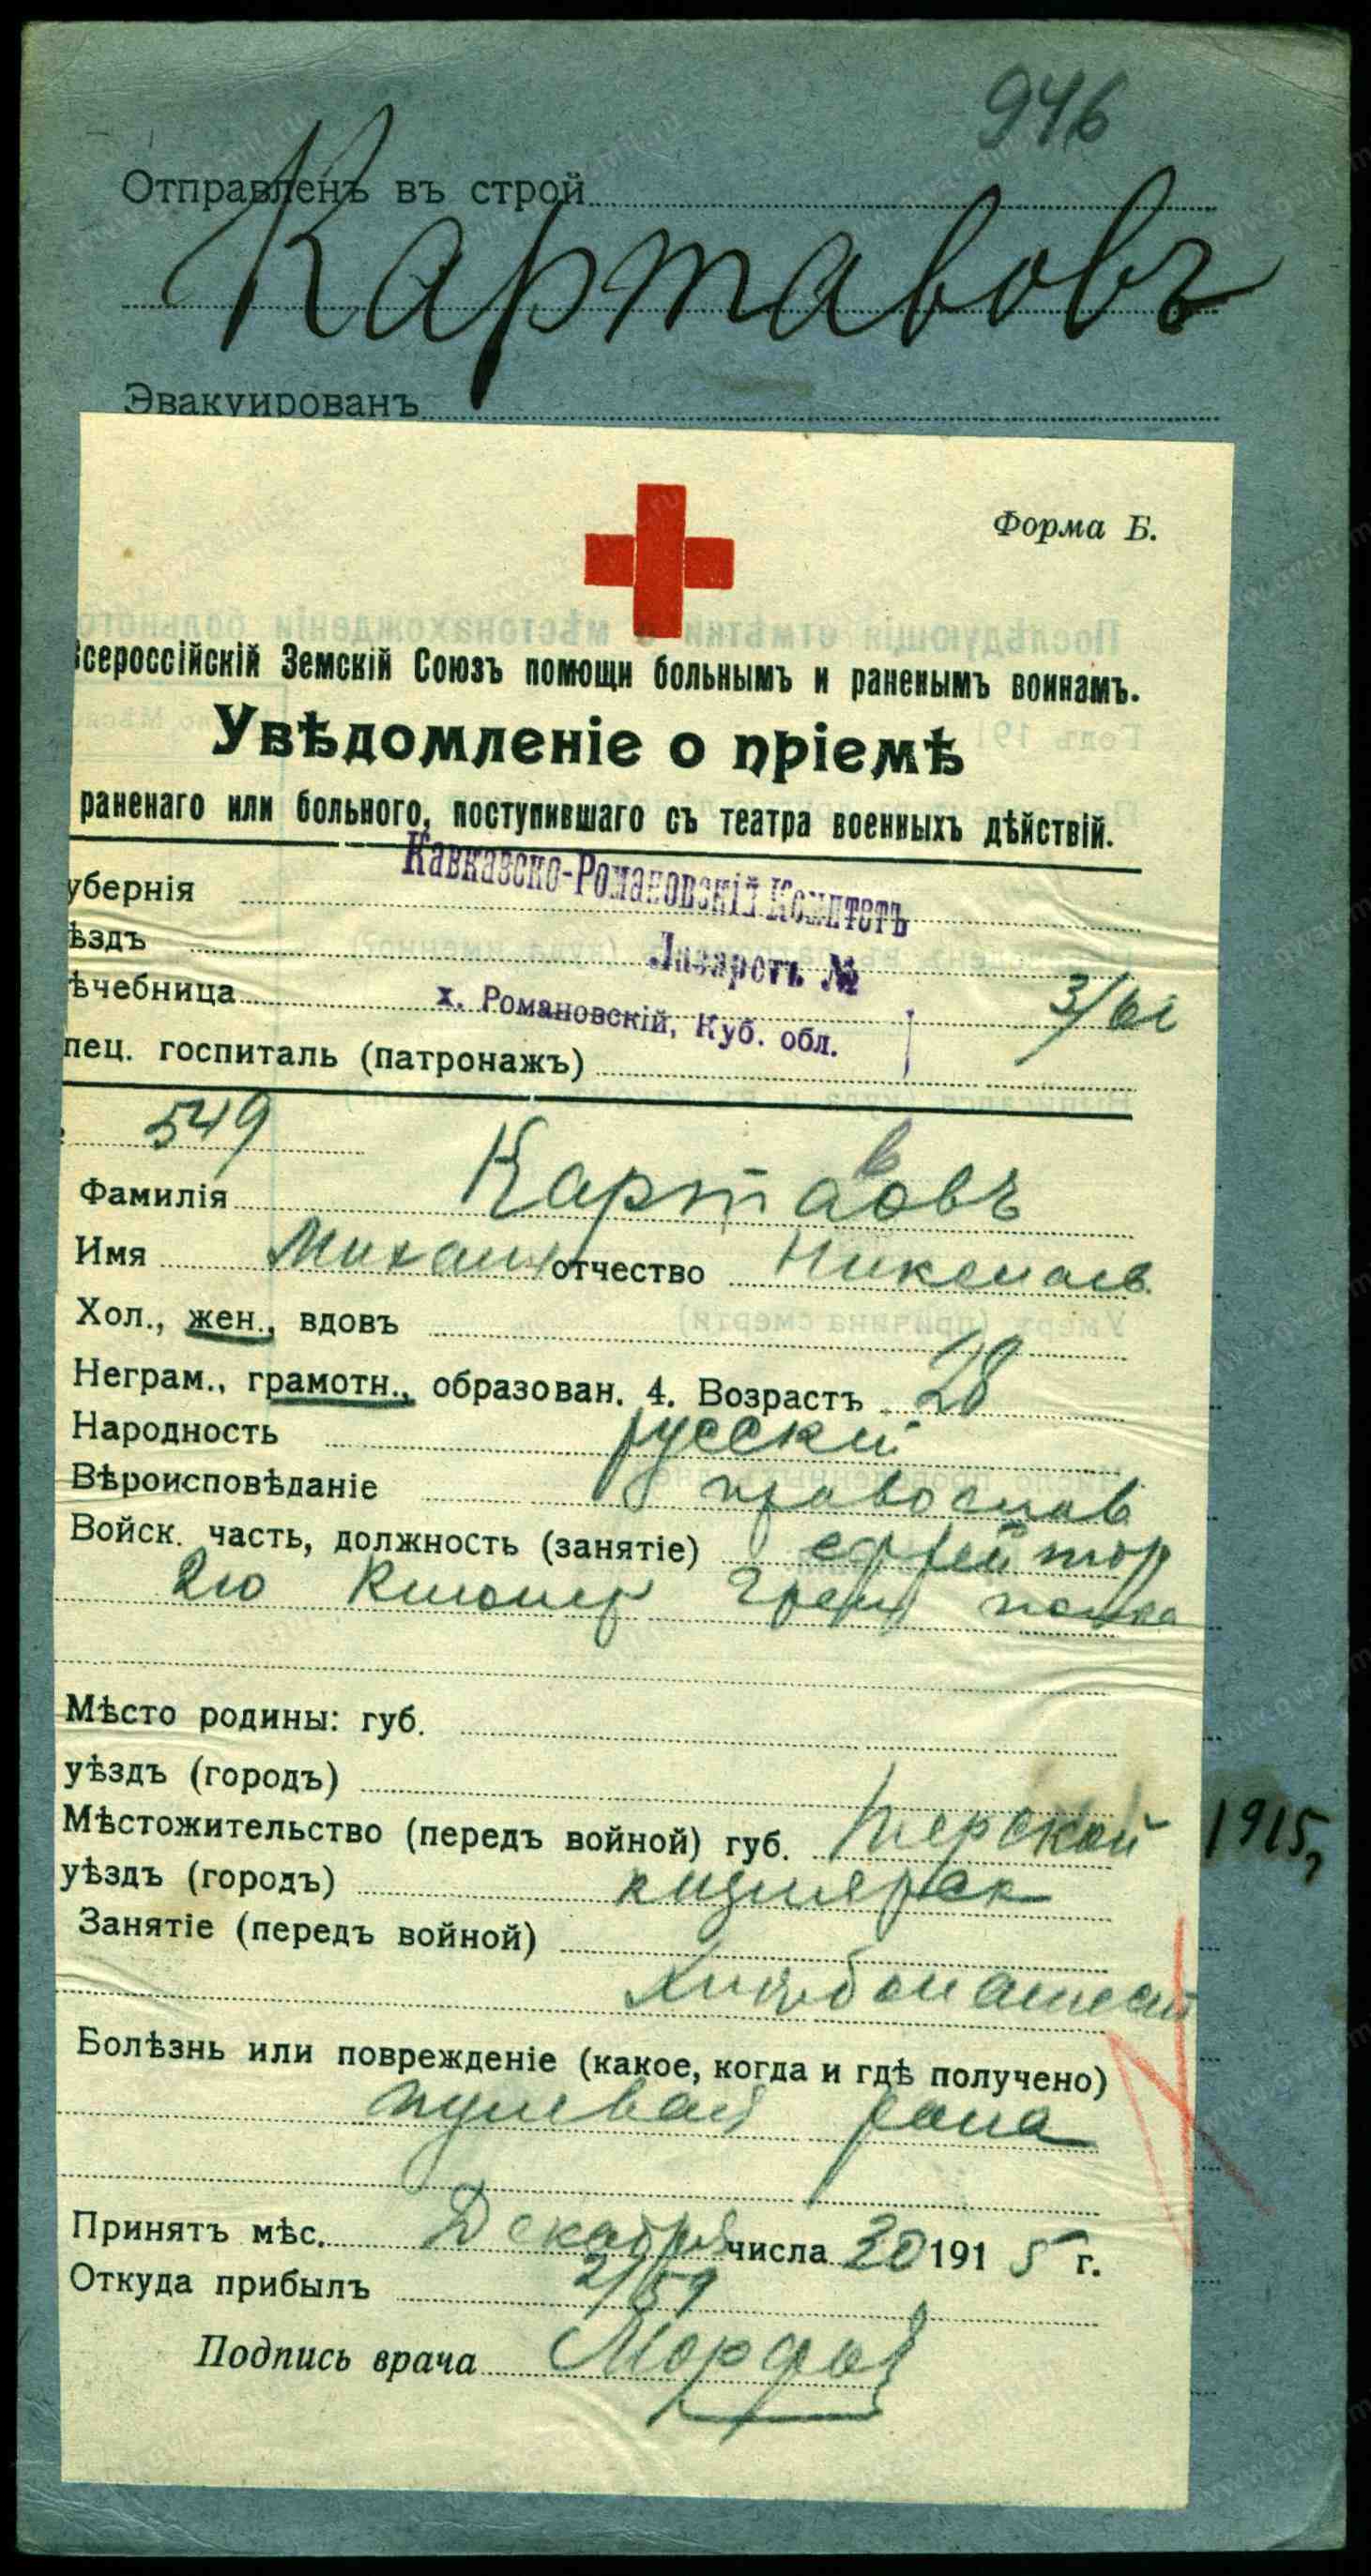 946
Отправленъ въ строй
Картавовъ
Эвакуированъ
Форма Б.
сероссійскій Земскій Союзъ помощи больнымъ и раненымъ воинамъ.
Увѣдомленіе о пріемѣ
раненаго или больного, поступившаго съ театра военныхъ дѣйствій.
Кавказско-Романовскій Комитетъ
убернія
Лазаретъ №
ѣздъ
ѣчебница 3/61
х. Романовскій, Куб. обл.
пец. госпиталь (патронажъ)
549
Фамилія Картавовъ
Имя Михаил отчество Николаев.
Хол., жен., вдовъ
Неграм., грамотн., образован. 4. Возрастъ 28
Народность русский
Вѣроисповѣданіе православ
Войск. часть, должность (занятіе) ефрейтор
2го Грен полка
Мѣсто родины: губ.
уѣздъ (городъ)
Мѣстожительство (передъ войной) губ. Терской
1915,
уѣздъ (городъ) кизлярск
Занятіе (передъ войной)
Хлѣбопашест
Болѣзнь или поврежденіе (какое, когда и гдѣ получено)
пулевая рана
Принятъ мѣс. Декабря числа 30 191 5 г.
Откуда прибылъ 2/59
Подпись врача